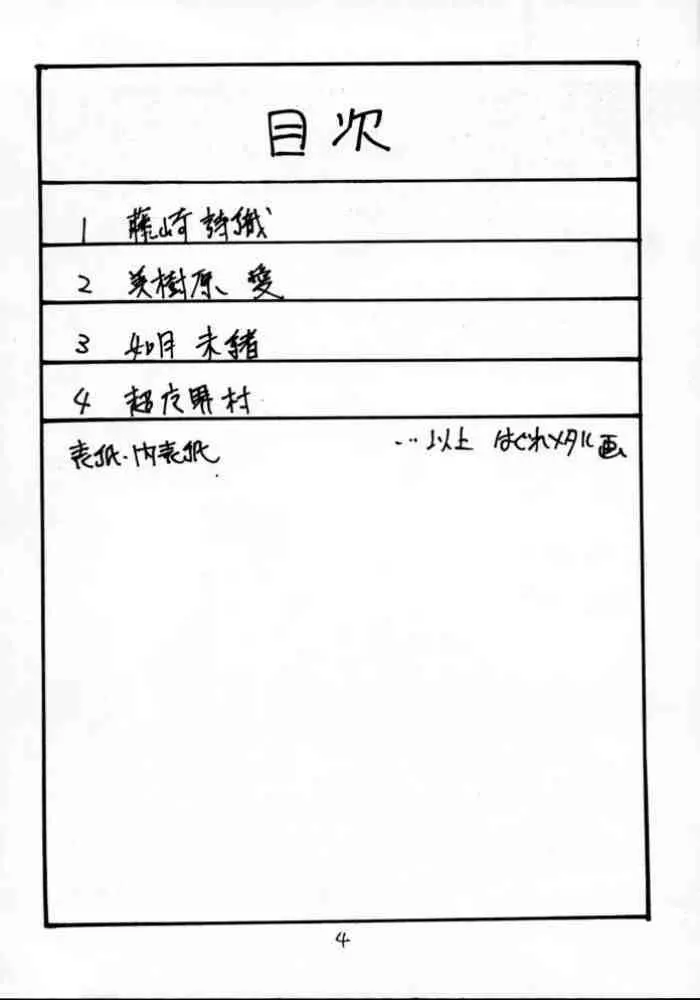 目次
1 藤崎詩織
2 美樹原 愛
3 如月 未緒
4 超夜界村
表紙・内表紙 …以上 はぐれメタル画
4